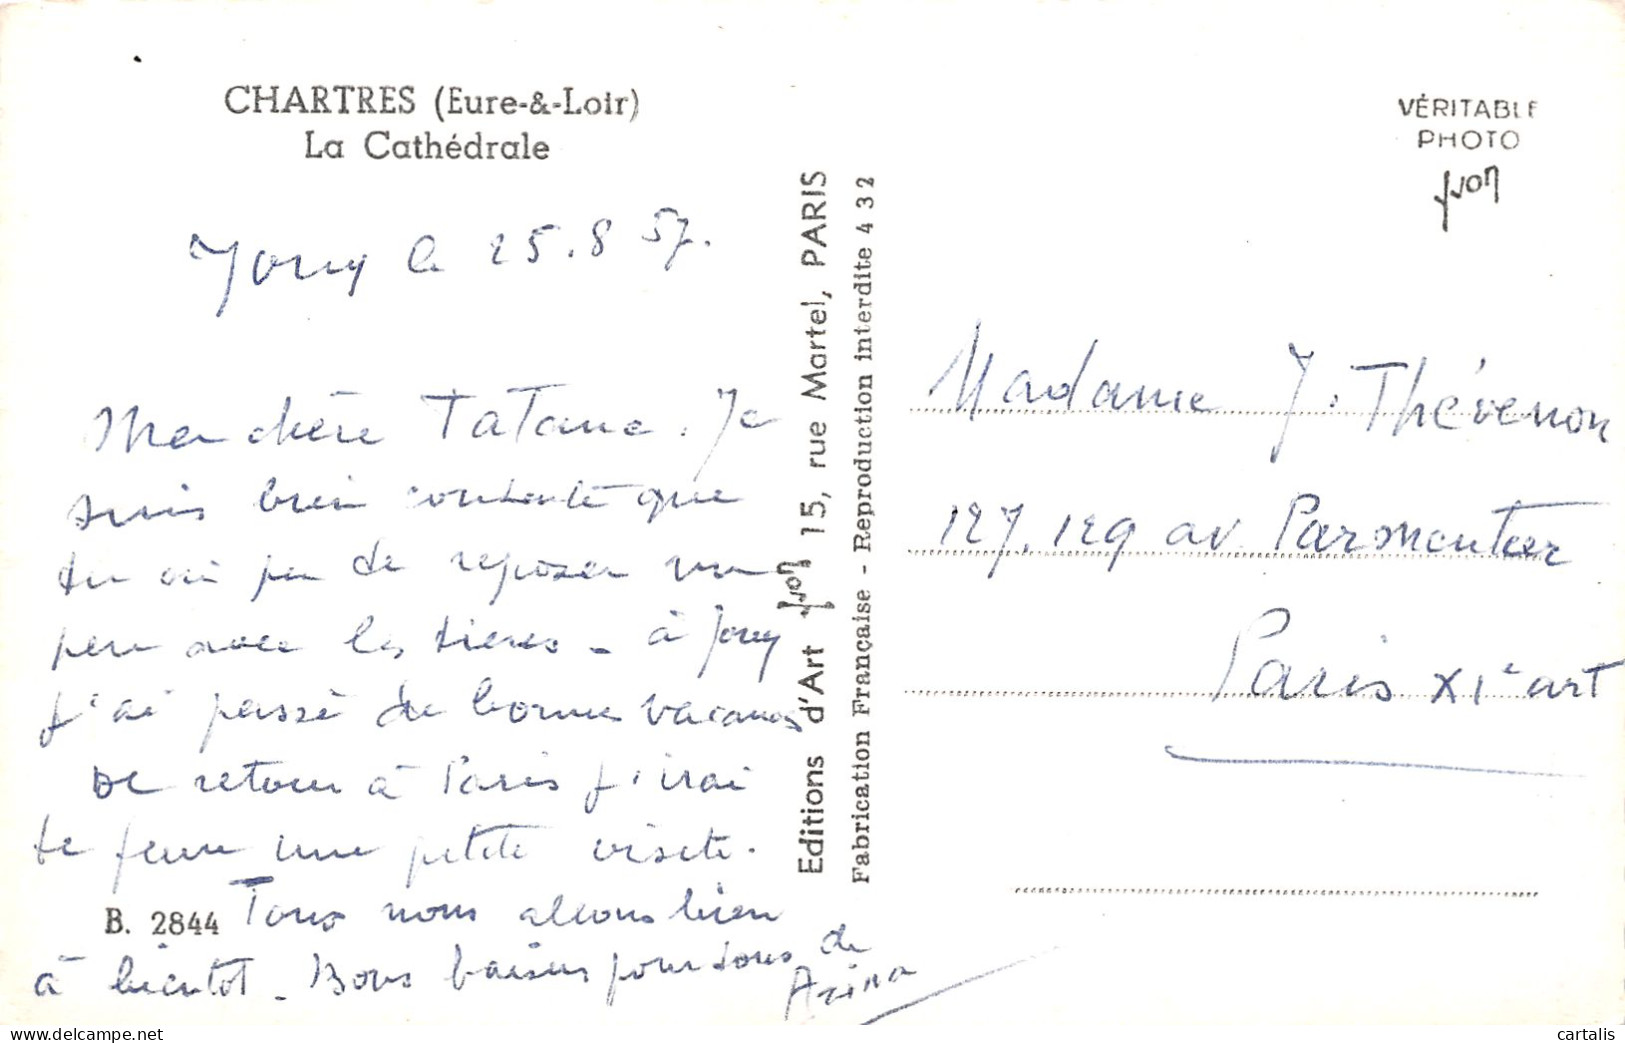 CHARTRES (Eure-&-Loir)
La Cathédrale
Jouy le 25.8 57.
Ma chère TaTane. Je
suis bien contente que
tu ai pu de reposer un
peu avec les tiens - à Jouy
j'ai passé de bonnes vacances
De retour à Paris j'irai
te faire une petite visite.
B. 2844
Tous nous allons bien
à bientôt - Bons baisers pour tous de
Editions d'Art yvon 15, rue Martel, PARIS
Fabrication Française - Reproduction interdite 432
VÉRITABLE
PHOTO
yvon
Madame J. Thévenon
127, 129 av Parmentier
Paris XIe art
cartalis